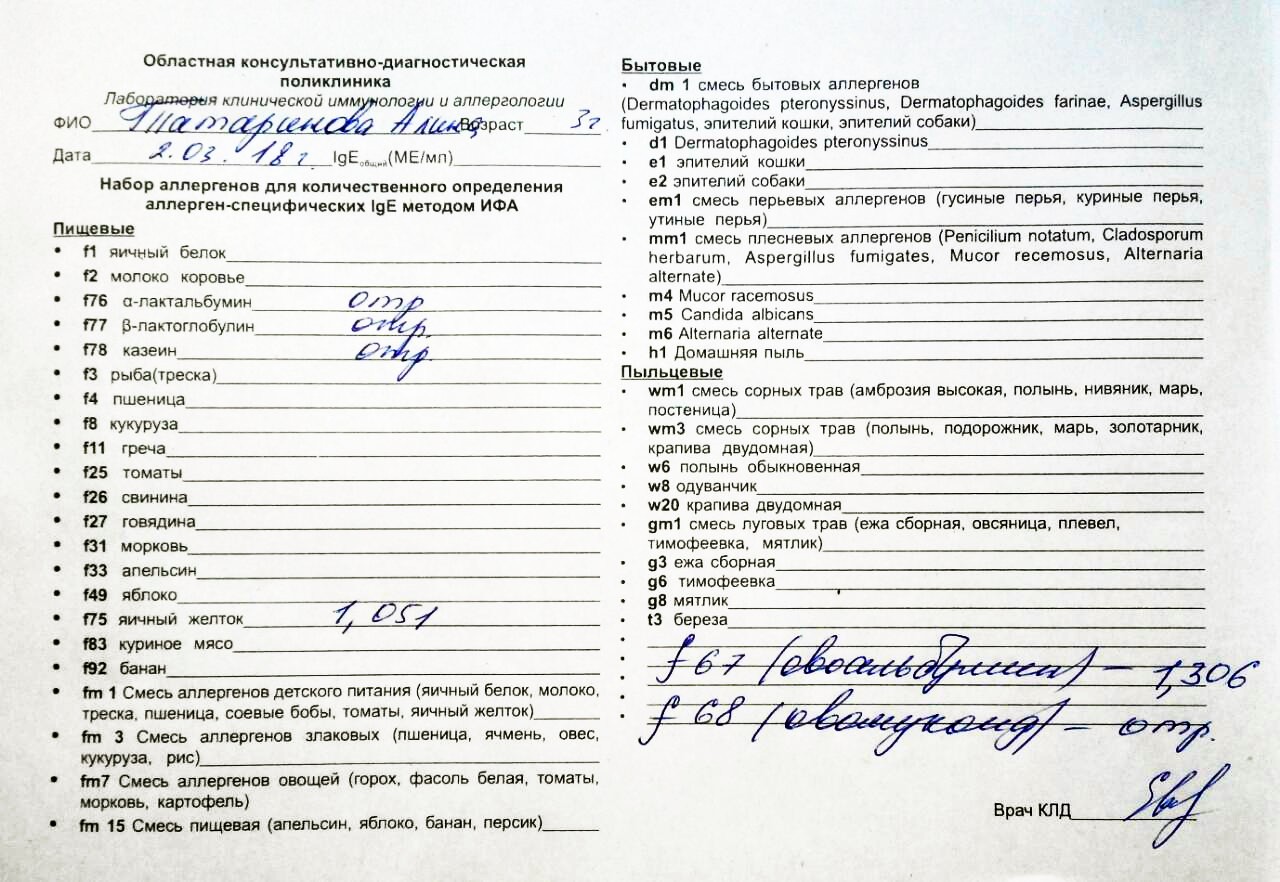 Областная консультативно-диагностическая
поликлиника
Лаборатория клинической иммунологии и аллергологии
ФИО Татаринова Алина Возраст 3г
Дата 2.03.18г IgEобщий(МЕ/мл)
Набор аллергенов для количественного определения
аллерген-специфических IgE методом ИФА
Пищевые
• f1 яичный белок
• f2 молоко коровье
• f76 α-лактальбумин отр
• f77 β-лактоглобулин отр.
• f78 казеин отр.
• f3 рыба(треска)
• f4 пшеница
• f8 кукуруза
• f11 греча
• f25 томаты
• f26 свинина
• f27 говядина
• f31 морковь
• f33 апельсин
• f49 яблоко
• f75 яичный желток 1,051
• f83 куриное мясо
• f92 банан
• fm 1 Смесь аллергенов детского питания (яичный белок, молоко,
треска, пшеница, соевые бобы, томаты, яичный желток)
• fm 3 Смесь аллергенов злаковых (пшеница, ячмень, овес,
кукуруза, рис)
• fm7 Смесь аллергенов овощей (горох, фасоль белая, томаты,
морковь, картофель)
• fm 15 Смесь пищевая (апельсин, яблоко, банан, персик)
Бытовые
• dm 1 смесь бытовых аллергенов
(Dermatophagoides pteronyssinus, Dermatophagoides farinae, Aspergillus
fumigatus, эпителий кошки, эпителий собаки)
• d1 Dermatophagoides pteronyssinus
• e1 эпителий кошки
• e2 эпителий собаки
• em1 смесь перьевых аллергенов (гусиные перья, куриные перья,
утиные перья)
• mm1 смесь плесневых аллергенов (Penicilium notatum, Cladosporum
herbarum, Aspergillus fumigates, Mucor recemosus, Alternaria
alternate)
• m4 Mucor racemosus
• m5 Candida albicans
• m6 Alternaria alternate
• h1 Домашняя пыль
Пыльцевые
• wm1 смесь сорных трав (амброзия высокая, полынь, нивяник, марь,
постеница)
• wm3 смесь сорных трав (полынь, подорожник, марь, золотарник,
крапива двудомная)
• w6 полынь обыкновенная
• w8 одуванчик
• w20 крапива двудомная
• gm1 смесь луговых трав (ежа сборная, овсяница, плевел,
тимофеевка, мятлик)
• g3 ежа сборная
• g6 тимофеевка
• g8 мятлик
• t3 береза
• f 67 (овоальбумин) – 1,306
• f 68 (овомукоид) – отр.
Врач КЛД